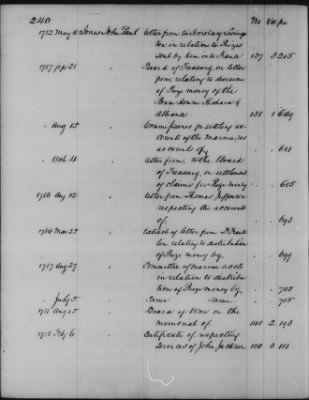 240 No Vol pa
1782 May 10 Jones John Paul letter from to Secretary Livings
ton in relation to Prizes
sent by him into France 137 3 205
1787 Sep 25 " Board of Treasury, on letter
from, relating to division
of Prize money of the
Bon homme Richard &
Alliance 138 1 649
" Aug 15 " Commissioner for settling ac
counts of the marine, re
accounts of - - 611
" Oct 4 " letter from, to the Board
of Treasury, on settlement
of claims for Prize money - - 615
1786 Aug 12 " letter from Thomas Jefferson
respecting the accounts
of. - - 693
1786 Mar 25 " Extract of letter from D Frank
lin relating to distribution
of Prize money by. - - 699
1787 Aug 27 " Committee of marine accts
in relation to distribu
tion of Prize money by. - - 703
" July 5 " Same same - 705
Aug 15 " Board of War on the
memorial of 148 2 193
Feb 6 " Certificate of respecting
services of John Jackson 150 2 111